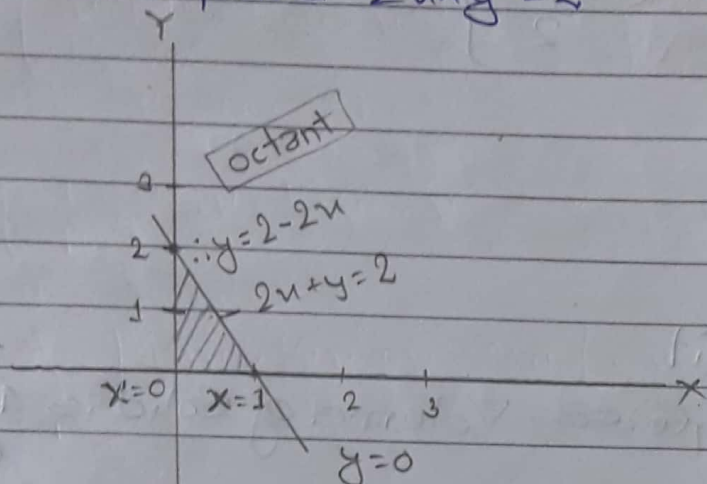 Y
octant
2
∴ y = 2-2x
2x+y=2
1
x=0
x=1
2
3
X
y=0